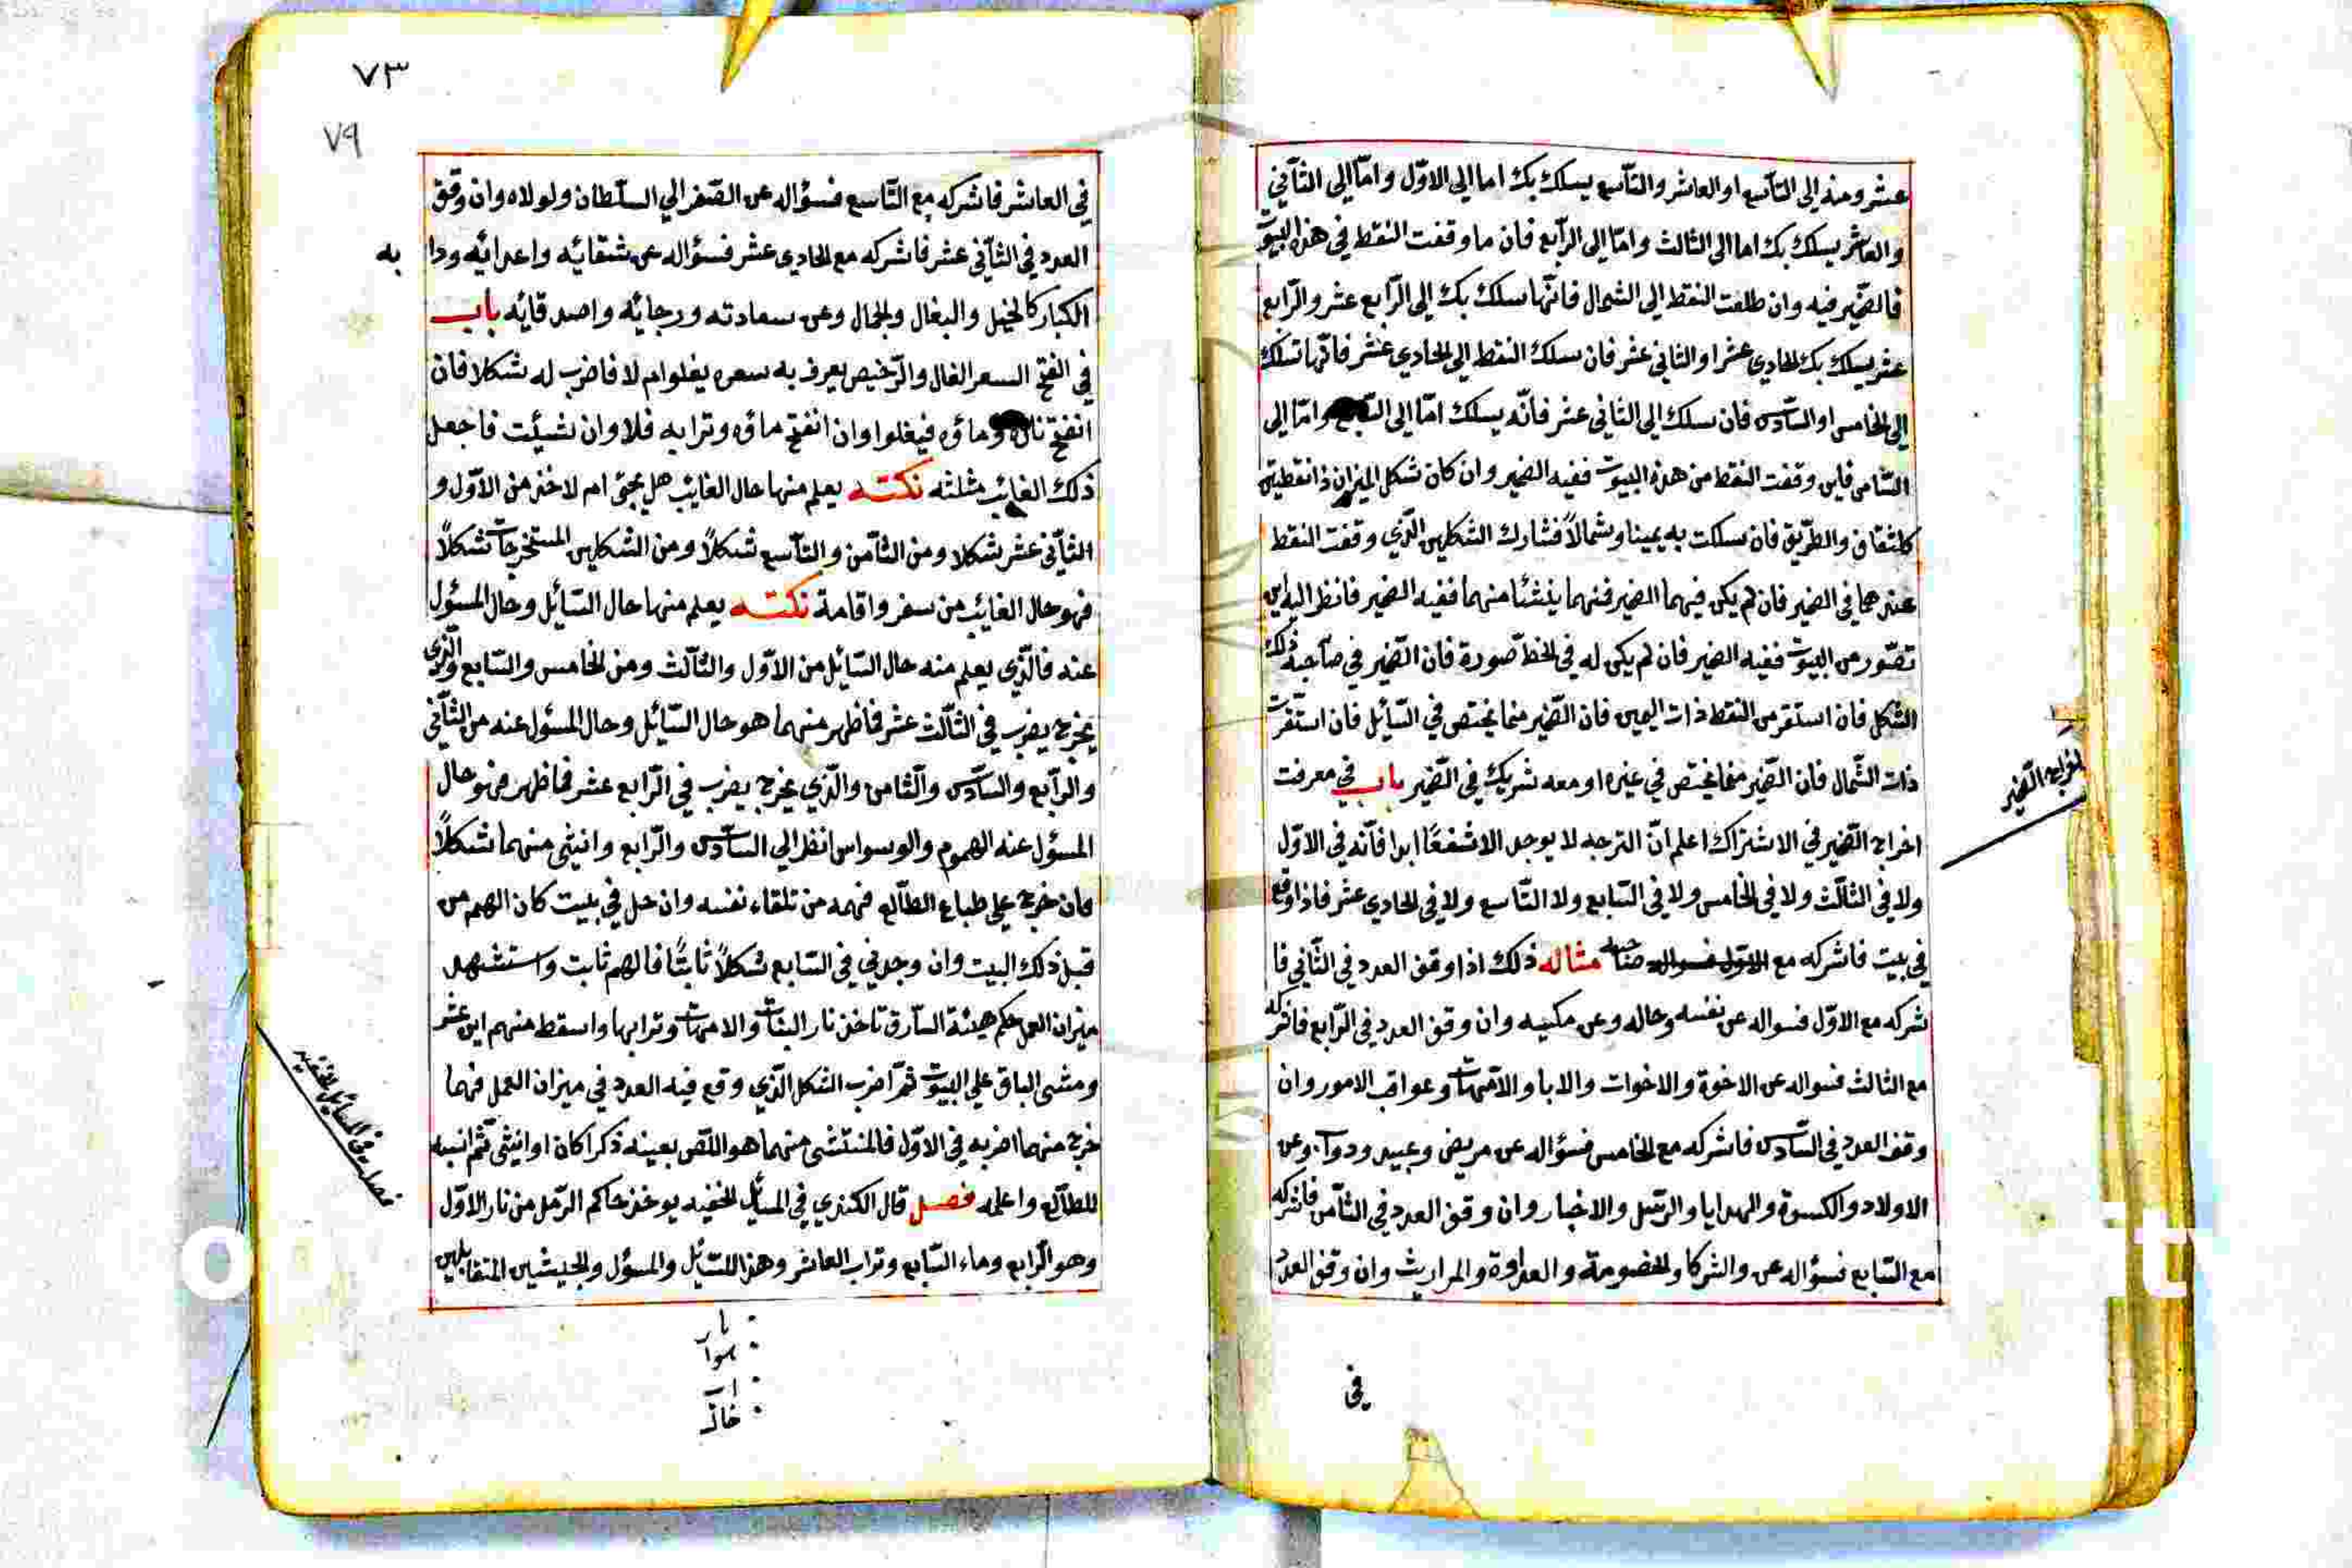 عشر ومنه إلى التاسع او العاشر والتاسع يسلك بك اما إلى الاوّل وامّا إلى الثاني
والعاشر يسلك بك اما الى الثالث وامّا إلى الرّابع فان ما وقفت النقط في هذه البيوت
فالضّمير فيه وان طلعت النقط إلى الشمال فانّها سلك بك إلى الرّابع عشر والرّابع
عشر يسلك بك الحادي عشر او الثاني عشر فان سلك النقط إلى الحادي عشر فانّها تسلك
إلى الخامس او السّادس فان سلك إلى الثاني عشر فانّه يسلك امّا إلى السّابع وامّا إلى
الثامن فاين وقفت النقط من هذه البيوت ففيه الضمير وان كان شكل الميزان ذا نقطتين
كلثقاف والطّريق فان سلكت به يمينا وشمالاً فشارك الشكلين الّذي وقفت النقط
عندهما في الضمير فان لم يكن فيهما الضمير فمنهما ينشئا منهما ففيه الضمير فانظر اليه اين
تصّور من البيوت ففيه الضمير فان لم يكن له في الخط صورة فان الضّمير في صاحبه ذلك
الشكل فان استقر من النقط ذات اليمين فان الضّمير مما يختص في السّائل فان استقرت
ذات الشّمال فان الضّمير مما يختص في غيره او معه شريك في الضّمير باب في معرفت
اخراج الضّمير في الاشتراك اعلم انّ الترجه لا يوجد الا شفعًا ابدا فأنّه في الاوّل
ولا في الثالث ولا في الخامس ولا في السّابع ولا التّاسع ولا في الحادي عشر فاذا وقع
في بيت فاشركه مع الاوّل فسواله مثاله ذلك اذا وقف العدد في الثّاني فا
شركه مع الاوّل فسواله عن نفسه وحاله وعن مكسبه وان وقف العدد في الرّابع فاشركه
مع الثالث فسواله عن الاخوة والاخوات والابا والامّهات وعواقب الامور وان
وقف العدد في السّادس فاشركه مع الخامس فسؤاله عن مريض وعبيد ودواب وعن
الاولاد والكسوة والهدايا والرّسل والاخبار وان وقف العدد في الثّامن فاشركه
مع السّابع فسؤاله عن والشركا والخصومة والعداوة والمواريث وان وقف العدد
في
اخراج الضّمير
٧٣
٧٩
في العاشر فاشركه مع التّاسع فسؤاله عن السّفر الي السلّطان ولولاه وان وقف
العدد في الثّاني عشر فاشركه مع الحادي عشر فسؤاله عن شقائه واعدائه ودا
به
الكبار كالخيل والبغال والجمال وعن سعادته ورجائه واصدقائه باب
في الفتح السعر الغال والرّخيص يعرف به سعره يغلوام لا فاضرب له شكلا فان
انفتح ناره وماؤه فيغلوا وان انفتح ماؤه وترابه فلا وان شئت فاجعل
ذلك الغايب مثلثه نكته يعلم منها حال الغايب هل يجئ ام لا خذ من الاوّل و
الثّاني عشر شكلا ومن الثّامن والتّاسع شكلاً ومن الشكلين المستخرجات شكلاً
فهو حال الغايب من سفر واقامة نكته يعلم منها حال السّايل وحال المسؤل
عنه فالّذي يعلم منه حال السّايل من الاوّل والثّالث ومن الخامس والسّابع والّذي
يخرج يضرب في الثّالث عشر فاظهر منهما هو حال السّائل وحال المسؤل عنه من الثّاني
والرّابع والسّادس والثّامن والّذي يخرج يضرب في الرّابع عشر فما ظهر فهو حال
المسؤل عنه الهموم والوسواس انظر الي السّادس والرّابع وانيثى منهما شكلاً
فان خرج علي طباع الطّالع فهمه من تلقاء نفسه وان حل في بيت كان الهم من
قبل ذلك البيت وان وجدني في السّابع شكلاً ثابتًا فالهم ثابت واستشهد
ميزان العمل حكم هيئة السّارق تاخذ نار البنات والامهات وترابها واسقط منهم اثن عشر
ومشى الباق علي البيوت ثمّ اضرب الشكل الّذي وقع فيه العدد في ميزان العمل فمهما
خرج منهما اضربه في الاوّل فالمنتشى منهما هو اللّص بعينه ذكرا كان او انيثى ثم انسبه
للطّالع واعلمه فصل قال الكندي في المسايل الخفيه يوخذ حاكم الرّمل من نار الاوّل
وهو الرّابع وماء السّابع وتراب العاشر وهذا للسّايل والمسؤل والجيشين المتقابلين
فصل في المسايل الخفيه
نار
هوا
خاك